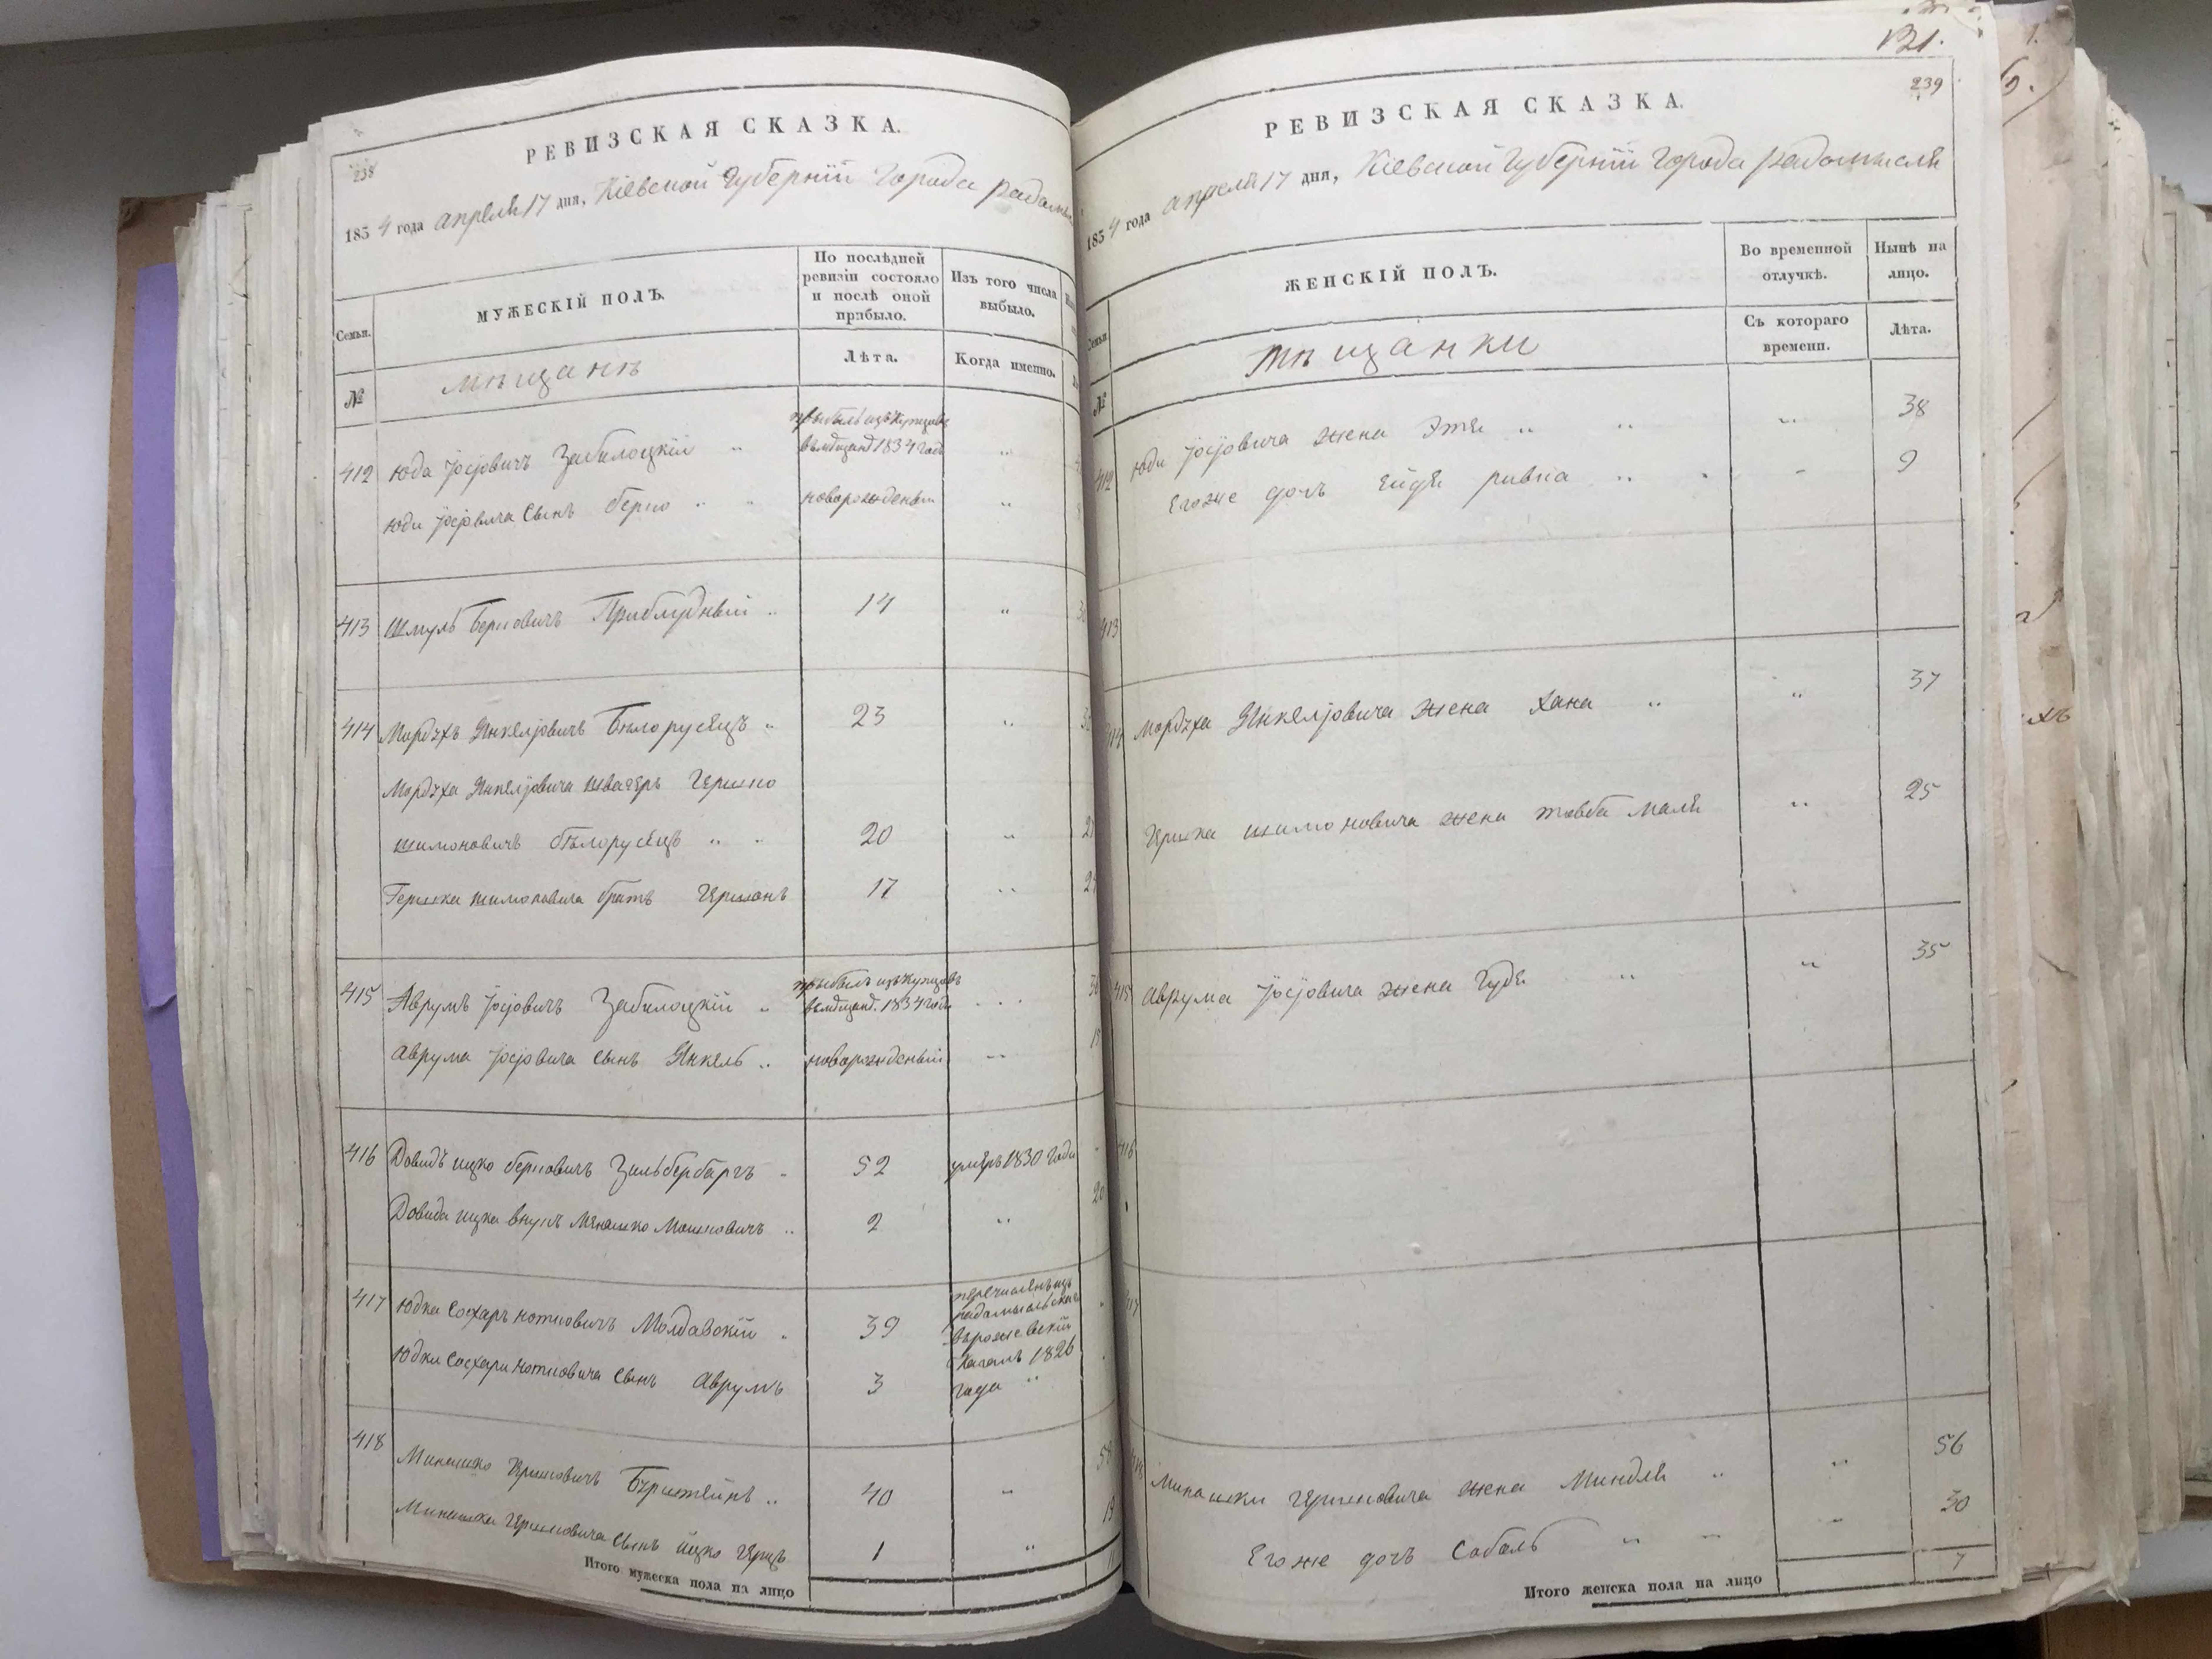 238
РЕВИЗСКАЯ СКАЗКА.
1854 года апреля 17 дня, Кіевской Губерніи Города Радомы
Семьи.
МУЖЕСКІЙ ПОЛЪ.
По послѣдней ревизіи состояло и послѣ оной прибыло.
Изъ того числа выбыло.
№
мѣщане
Лѣта.
Когда именно.
прыбылъ изъ Купцовъ
412 Юда Іосіовичъ Забилоцкій "
въ мѣщанѣ 1834 года "
Юди Іосіовича Сынъ берко " " новорожденый "
413 Шмуль Берковичъ Приблудный " 14 "
414 Мордхъ ЯнкелІовичъ Бѣлорусецъ " 23 "
Мордха Янкеліовича швагеръ Гершко
шимоновичъ бѣлорусецъ " " 20 "
Гершка шимоновича братъ Гершонъ 17 "
прыбылъ изъ Купцовъ
415 Аврумъ Іосіовичъ Забилоцкій "
въ мѣщанѣ. 1834 года
Аврума Іосіовича сынъ Янкель " новорожденый "
416 Довидъ ицко берковичъ Зильбербаргъ " 52 умеръ 1830 года
Довида ицка внукъ Менашко Мошковичъ " 2 "
417 Юдка Сохаръ нотковичъ Молдавскій " 39
перечисленъ изъ
радомысльскаго
въ
Кагалъ 1826
года "
Юдки Сохари нотковича Сынъ Аврумъ 3
418 Минашко Гершковичъ Бернштейнъ " 40 "
Минашки Гершковича сынъ ицко Герцъ 1 "
Итого мужеска пола на лицо
121.
239
РЕВИЗСКАЯ СКАЗКА.
1854 года апреля 17 дня, Кіевской Губерніи Города Радомысля
Семьи.
ЖЕНСКІЙ ПОЛЪ.
Во временной отлучкѣ.
Нынѣ на лицо.
№
мѣщанки
Съ котораго времени.
Лѣта.
412 Юди Іосіовича жена Этя " " " 38
Его же дочь Ейдя ривка " " - 9
413
414 Мордха Янкеліовича жена Хана " " 37
Гершка шимоновича жена товба Маля " 25
415 Аврума Іосіовича жена Гудя " " 35
416
417
418 Минашки Гершковича жена Миндля " " 56
Его же дочь Собель " " " 30
Итого женска пола на лицо 7